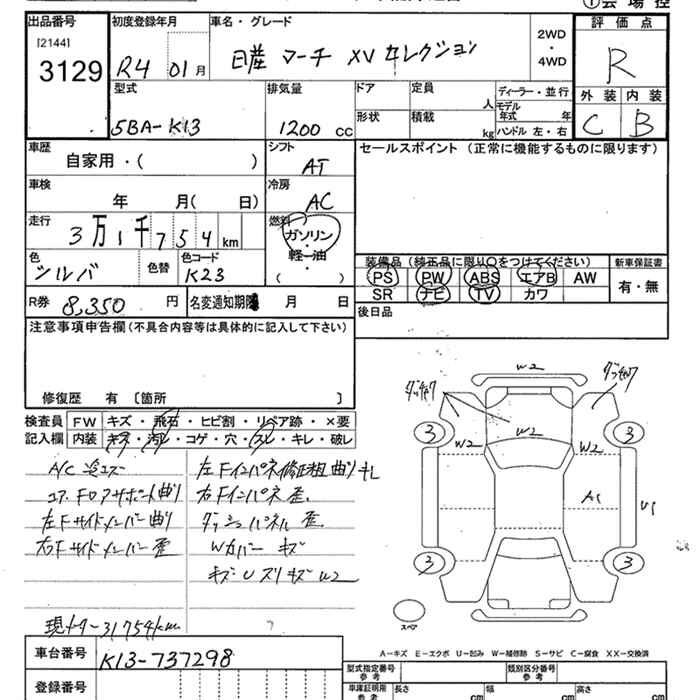 ①会場控
出品番号 初度登録年月 車名・グレード 評価点
[2144]
3129 R4 01月 日産 マーチ XV セレクション 2WD・4WD R
型式 排気量 ドア 定員 人 ディーラー・並行 外装 内装
5BA-K13 1200cc 形状 積載 kg モデル年式 年 ハンドル 左・右 C B
車歴 シフト セールスポイント (正常に機能するものに限ります)
自家用・( ) AT
車検 冷房
年 月( 日) AC
走行 燃料
3万1千754km ガソリン・軽油
色 色替 色コード ( ) 装備品 (純正品に限り○をつけてください) 新車保証書
シルバ K23 PS PW ABS エアB AW 有・無
R券 8,350円 名変通知期限 月 日 SR ナビ TV カワ
注意事項申告欄 (不具合内容等は具体的に記入して下さい) 後日品
修復歴 有 〔箇所 〕
検査員 FW キズ・飛石・ヒビ割・リペア跡・×要
記入欄 内装 キズ・汚レ・コゲ・穴・スレ・キレ・破レ
A/C
コア、Fロアサポート曲り
左Fサイドメンバー曲り
右Fサイドメンバー歪
現メーター31754km
左Fインパネ修正粗曲りキレ
右Fインパネ歪
ダッシュパネル歪
Wカバー キズ
W2
W2
W2 W2
A1 U1
3 3
3 3
スペア
A-キズ E-エクボ U-凹み W-補修跡 S-サビ C-腐食 XX-交換済
車台番号 K13-737298
型式指定番号 参考 類別区分番号 参考
登録番号 車庫証明用 参考 長さ 幅 高さ